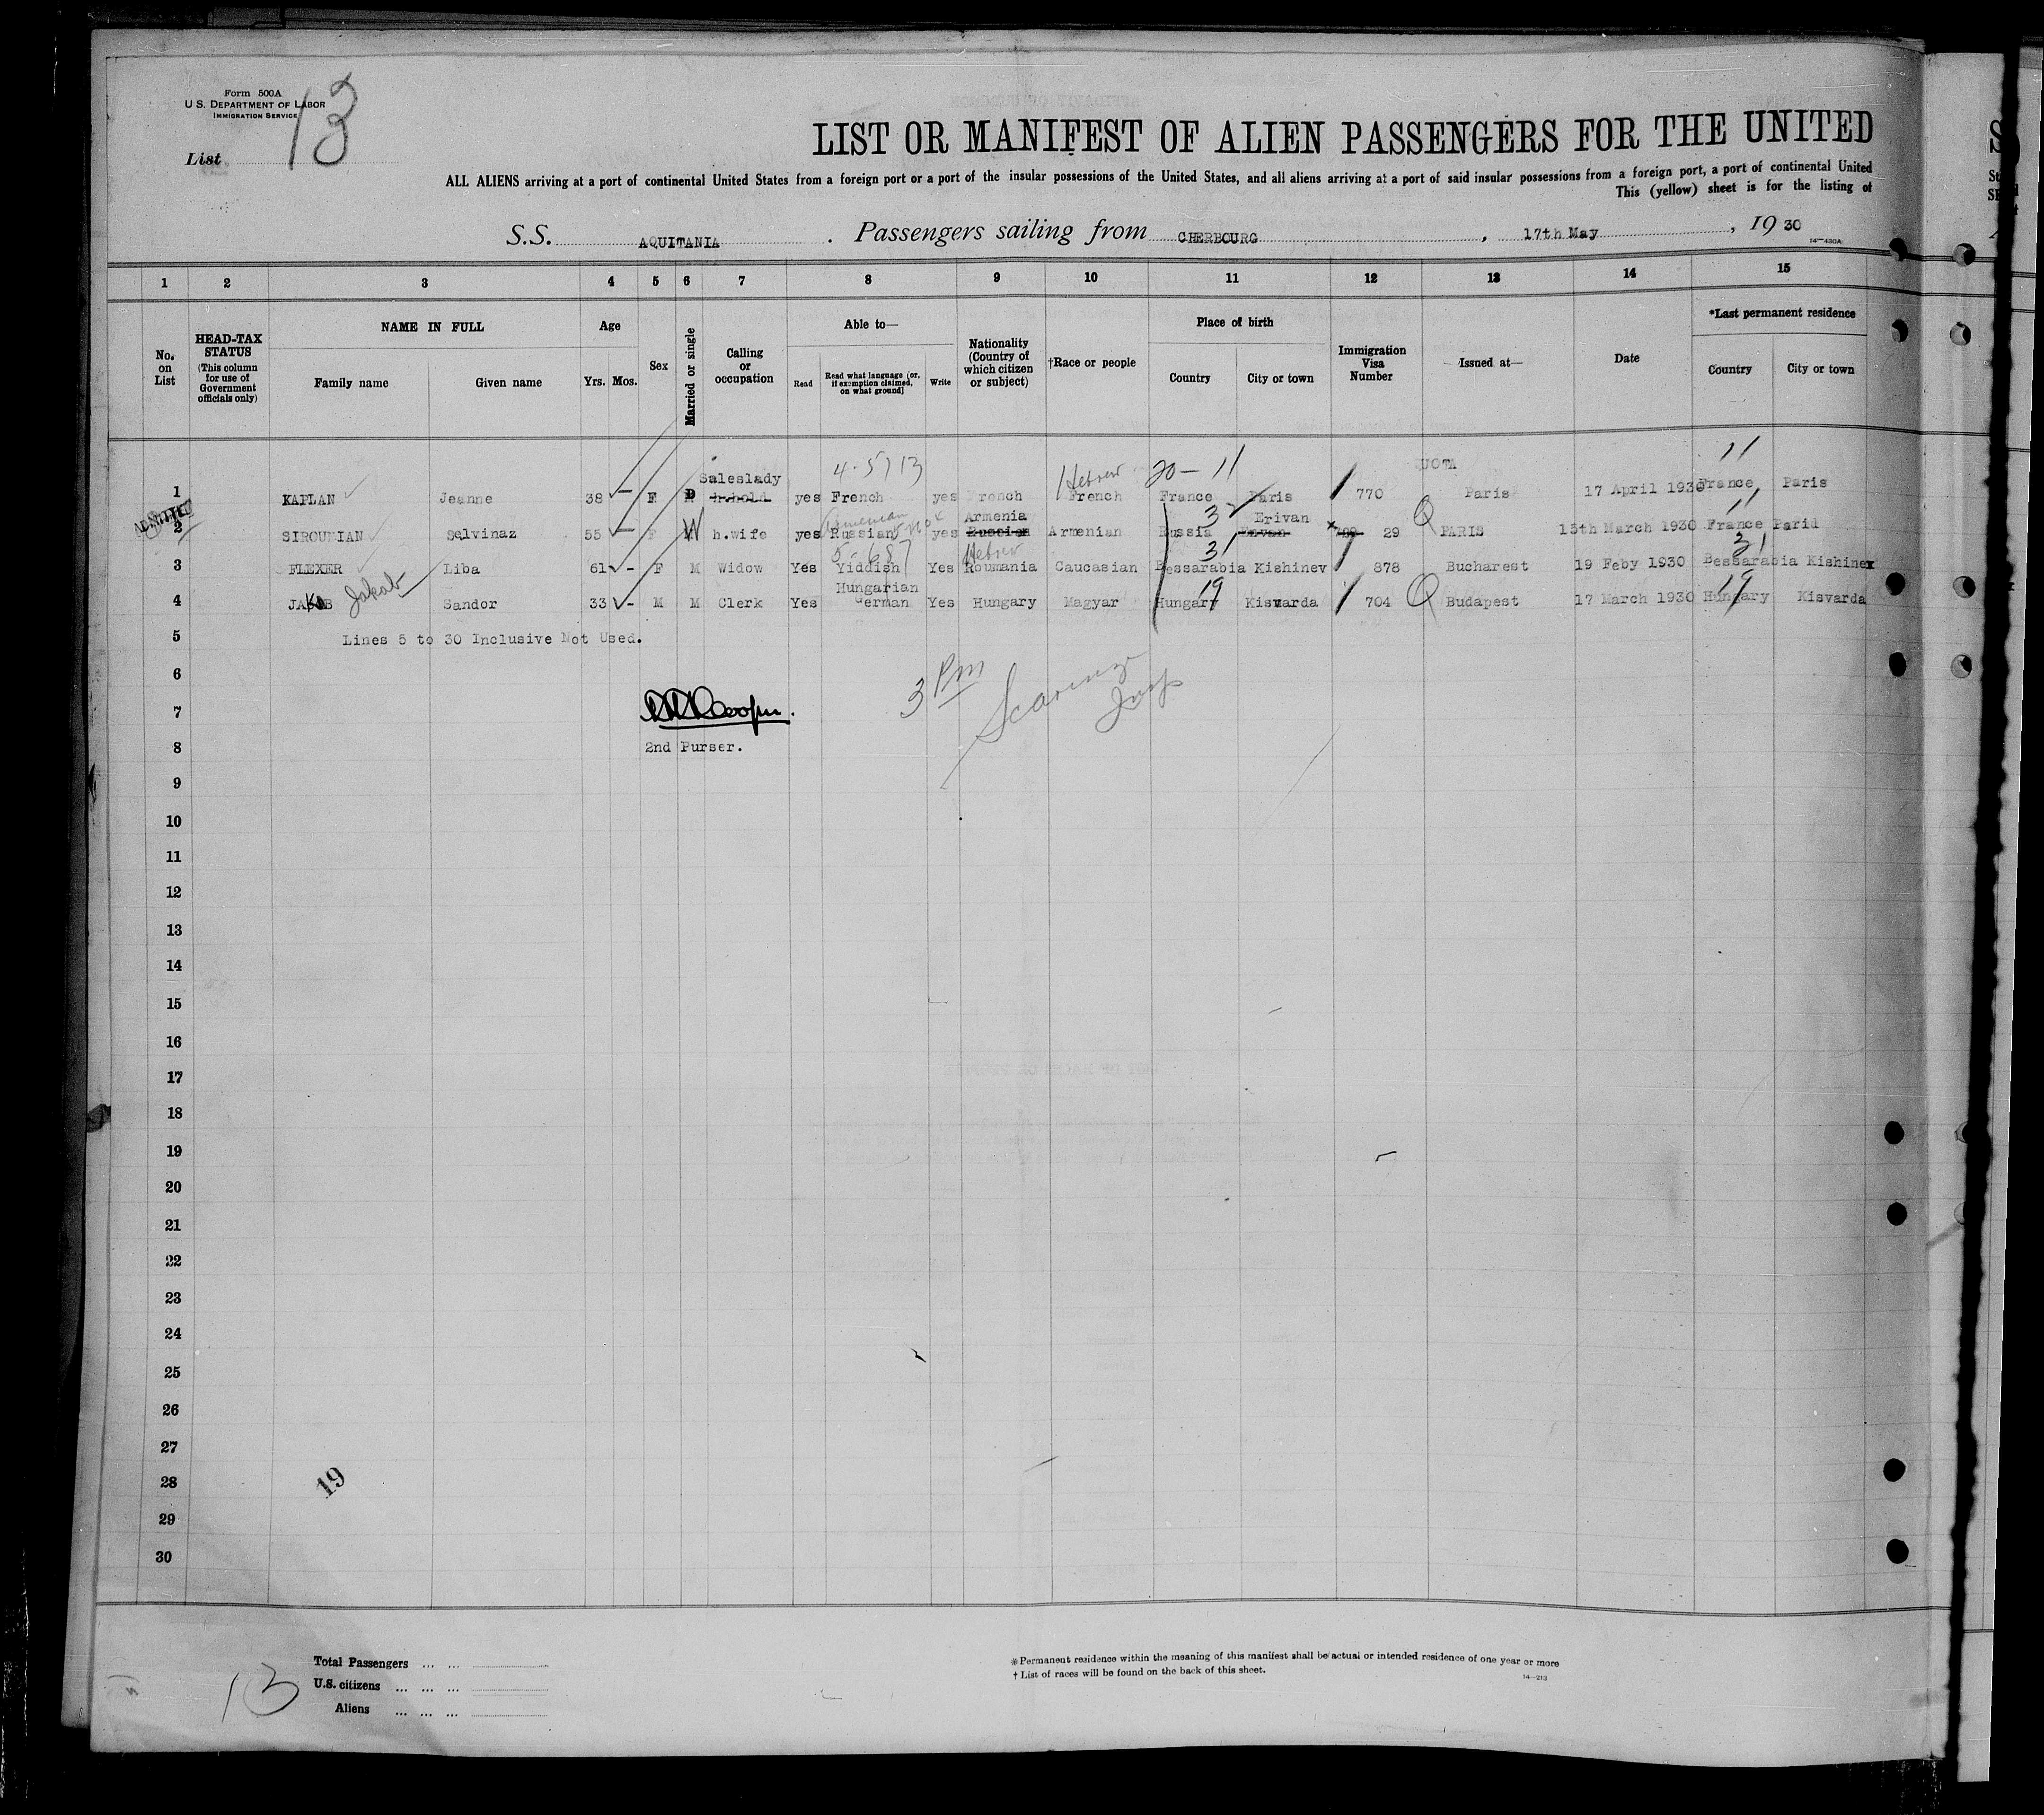 Form 500A
U. S. DEPARTMENT OF LABOR
IMMIGRATION SERVICE
List 13
LIST OR MANIFEST OF ALIEN PASSENGERS FOR THE UNITED
ALL ALIENS arriving at a port of continental United States from a foreign port or a port of the insular possessions of the United States, and all aliens arriving at a port of said insular possessions from a foreign port, a port of continental United
This (yellow) sheet is for the listing of
S.S. AQUITANIA . Passengers sailing from CHERBOURG , 17th May , 19 30
14—430A
1 2 3 4 5 6 7 8 9 10 11 12 13 14 15
No. on List
HEAD-TAX STATUS (This column for use of Government officials only)
NAME IN FULL
Family name Given name
Age
Yrs. Mos.
Sex
Married or single
Calling or occupation
Able to—
Read Read what language [or, if exemption claimed, on what ground] Write
Nationality (Country of which citizen or subject)
†Race or people
Place of birth
Country City or town
Immigration Visa Number
Issued at—
Date
*Last permanent residence
Country City or town
4-5713 Hebrew 20-11 11
Saleslady UOTA
1 KAPLAN Jeanne 38 F D h.hold yes French yes French French France Paris 770 Paris 17 April 1930 France Paris
ADMITTED Armenian Armenia 3 Erivan
2 SIROUNIAN Selvinaz 55 F W h.wife yes Russian yes Russian Armenian Russia Erivan 29 Q PARIS 15th March 1930 France Parid
5-687 Hebrew 31 31
3 FLEXER Liba 61 - F M Widow Yes Yiddish Yes Roumania Caucasian Bessarabia Kishinev 878 Bucharest 19 Feby 1930 Bessarabia Kishinev
Hungarian 19 19
4 JAKOB Jakob Sandor 33 - M M Clerk Yes German Yes Hungary Magyar Hungary Kisvarda 704 Q Budapest 17 March 1930 Hungary Kisvarda
5 Lines 5 to 30 Inclusive Not Used.
6
3 PM
7
8 2nd Purser.
9
10
11
12
13
14
15
16
17
18
19
20
21
22
23
24
25
26
27
28
19
29
30
13
Total Passengers ... ...
U.S. citizens ... ... ...
Aliens ... ... ...
* Permanent residence within the meaning of this manifest shall be actual or intended residence of one year or more
† List of races will be found on the back of this sheet.
14—213